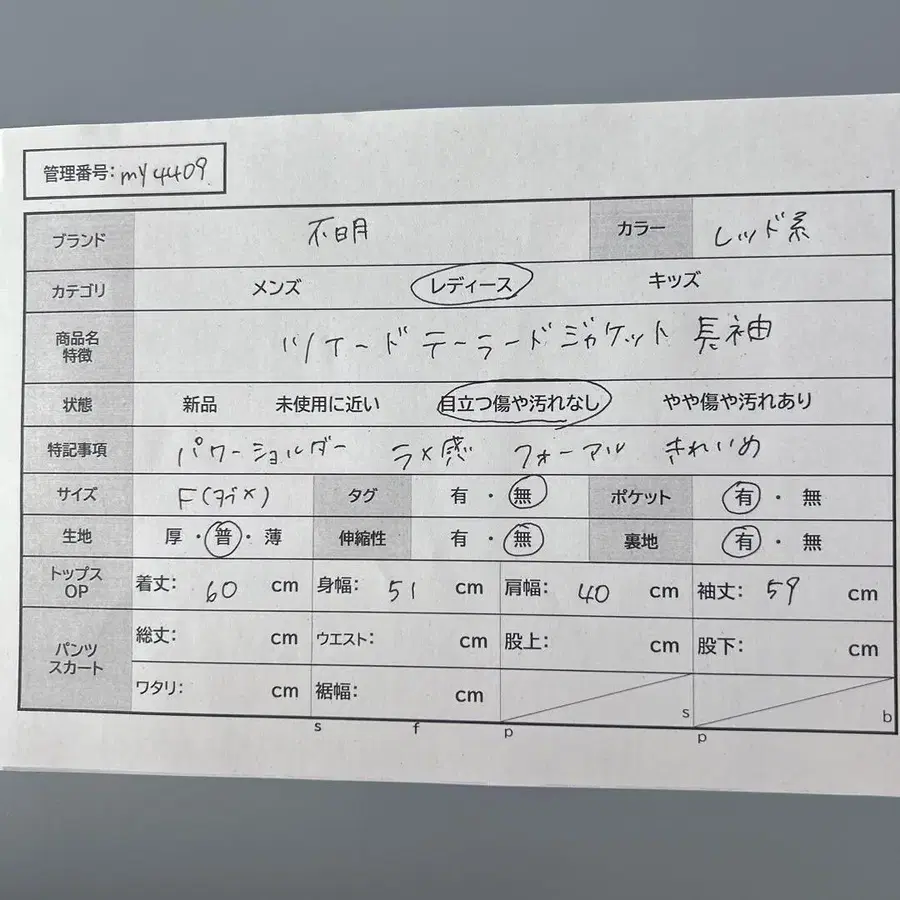 管理番号: my4409
ブランド 不明 カラー レッド系
カテゴリ メンズ レディース キッズ
商品名 特徴 ツイードテーラードジャケット 長袖
状態 新品 未使用に近い 目立つ傷や汚れなし やや傷や汚れあり
特記事項 パワーショルダー ラメ感 フォーマル きれいめ
サイズ F(タグ×) タグ 有 ・ 無 ポケット 有 ・ 無
生地 厚 ・ 普 ・ 薄 伸縮性 有 ・ 無 裏地 有 ・ 無
トップス OP 着丈: 60 cm 身幅: 51 cm 肩幅: 40 cm 袖丈: 59 cm
パンツ スカート 総丈: cm ウエスト: cm 股上: cm 股下: cm
ワタリ: cm 裾幅: cm s b
s f p p